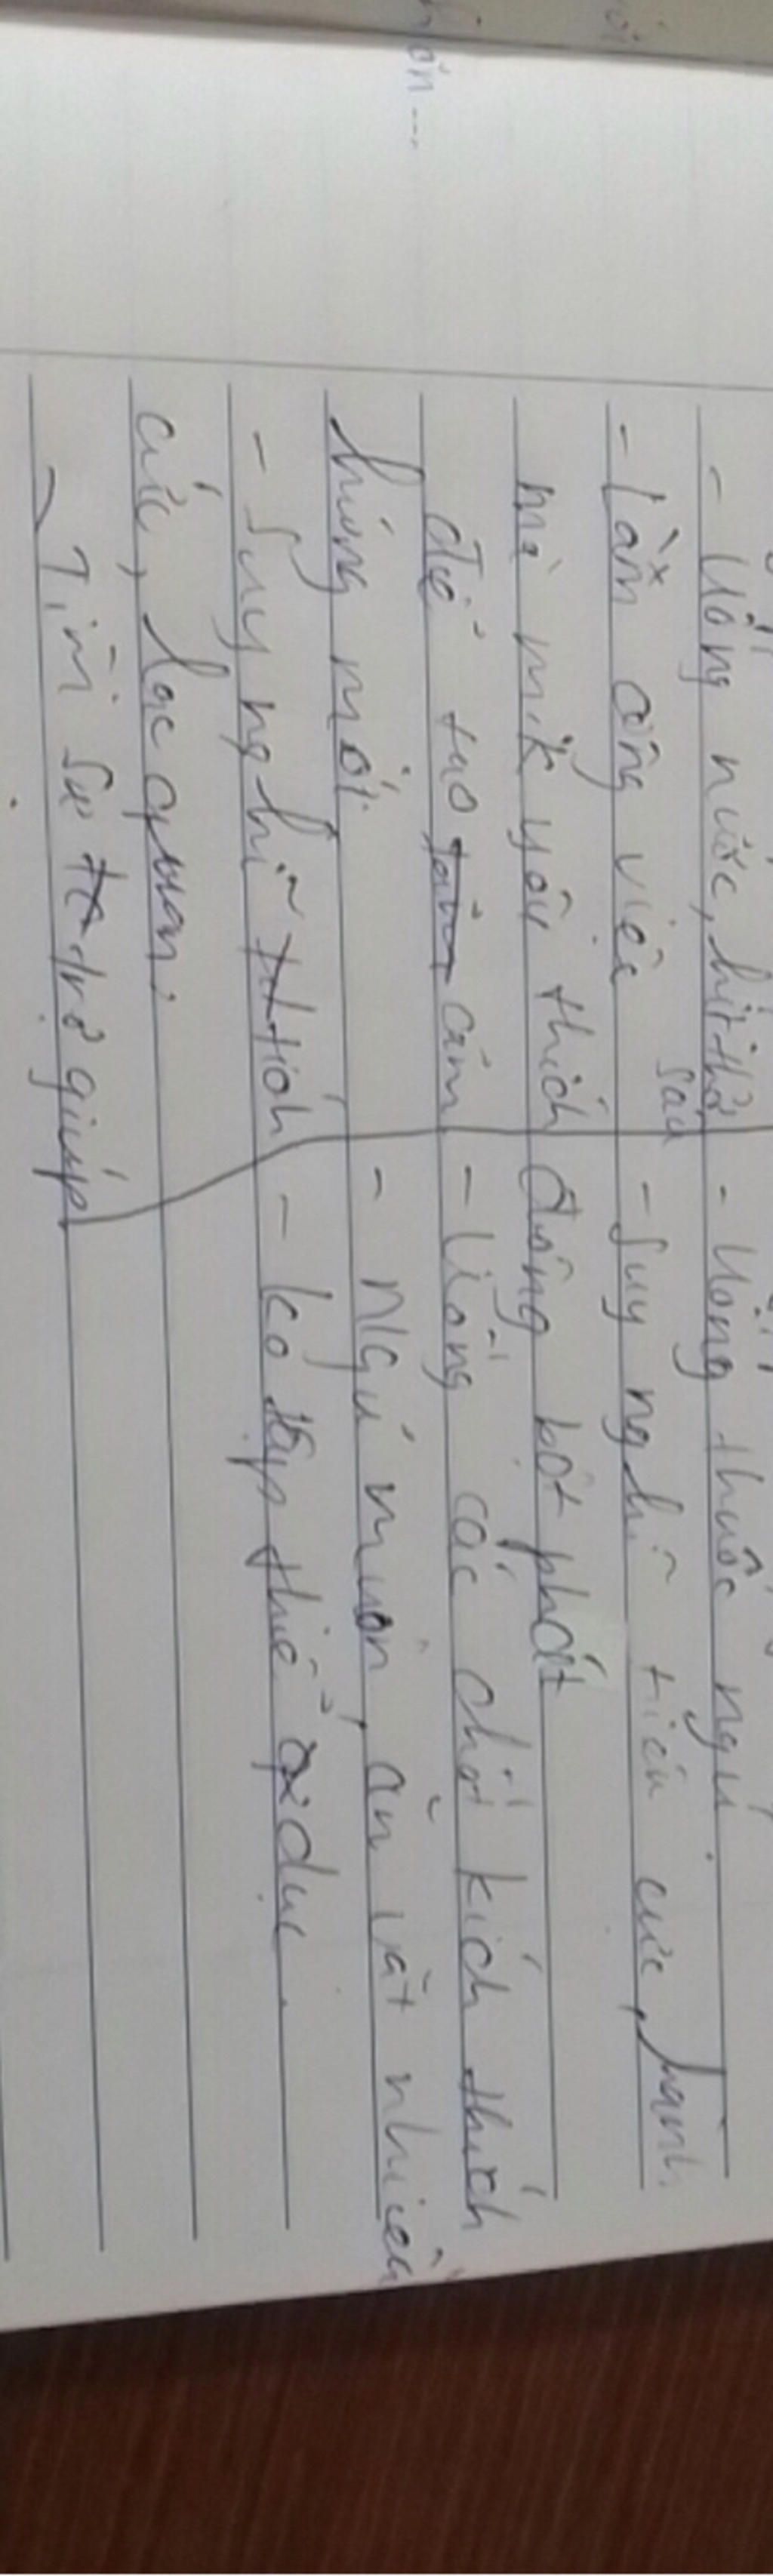 - Uống nước, hít thở sâu
- Làm công việc
mà mik yêu thích
để tạo cảm
hứng mới.
- Suy nghĩ tích
cực, lạc quan.
- Tìm sự trợ giúp
- Uống thuốc ngủ
- Suy nghĩ tiêu cực, hành
động bột phát
- Uống các chất kích thích
- Ngủ muộn, ăn vặt nhiều
- ko tập thể dục